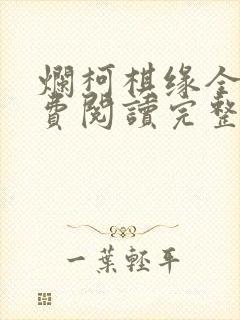 爛柯棋缘全
費閱讀完整
一葉輕平